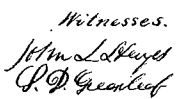 Witnesses.
John L
S. D. Greenleaf